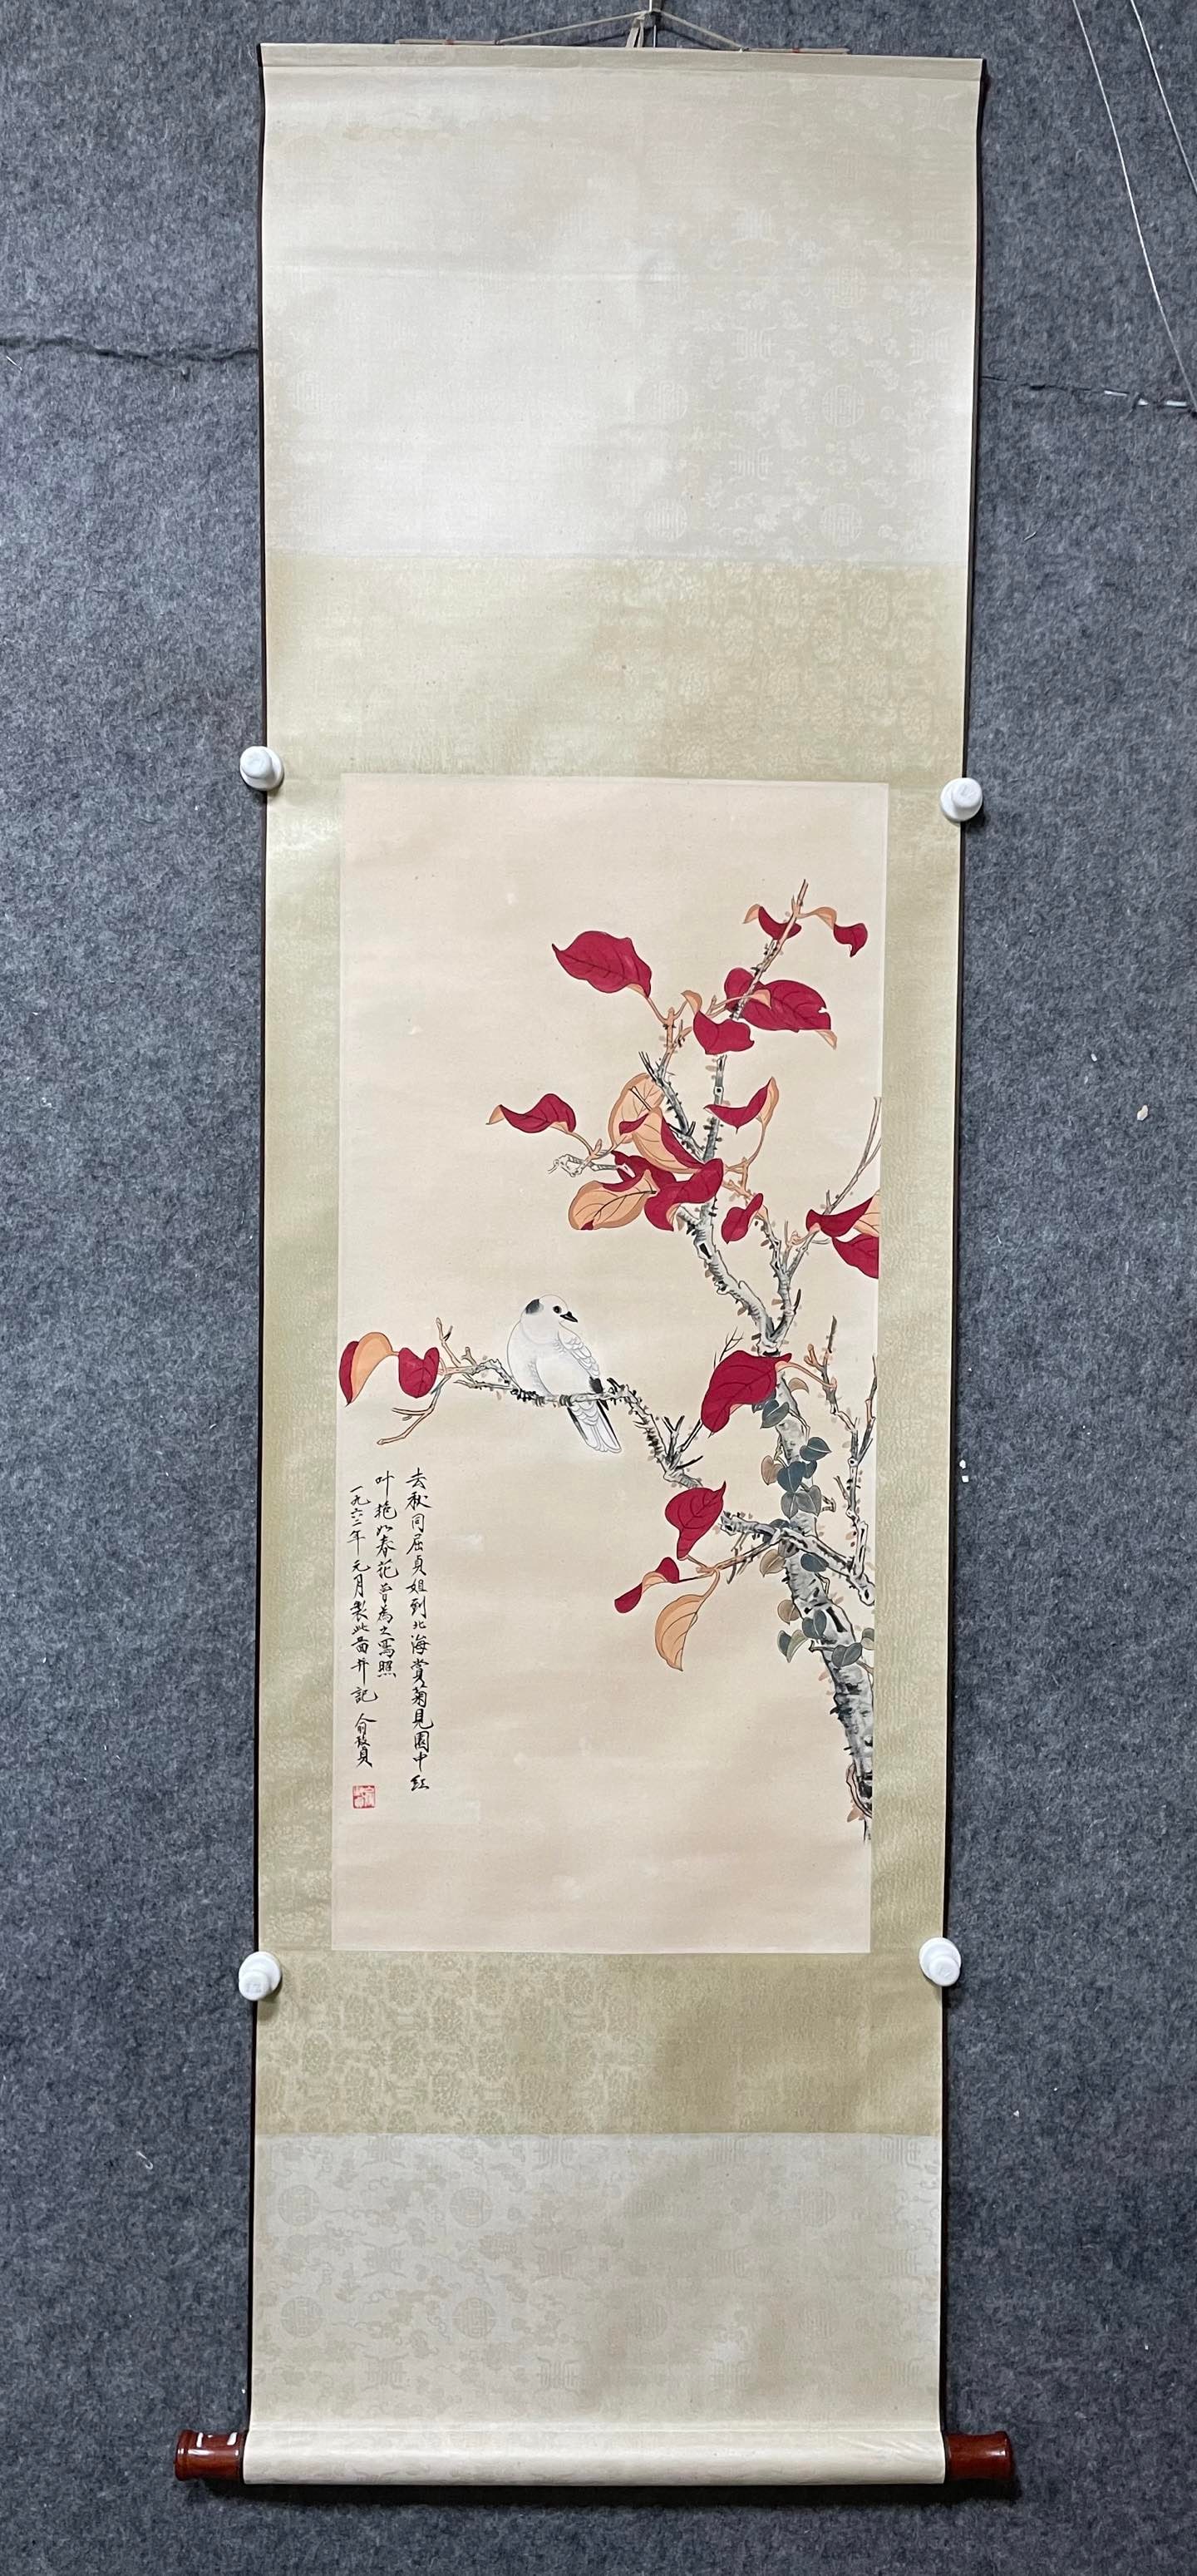 去秋同屈贞姐到北海賞菊見園中红
叶艳如春花曾為之寫照
一九六二年元月製此啚并記 俞致貞